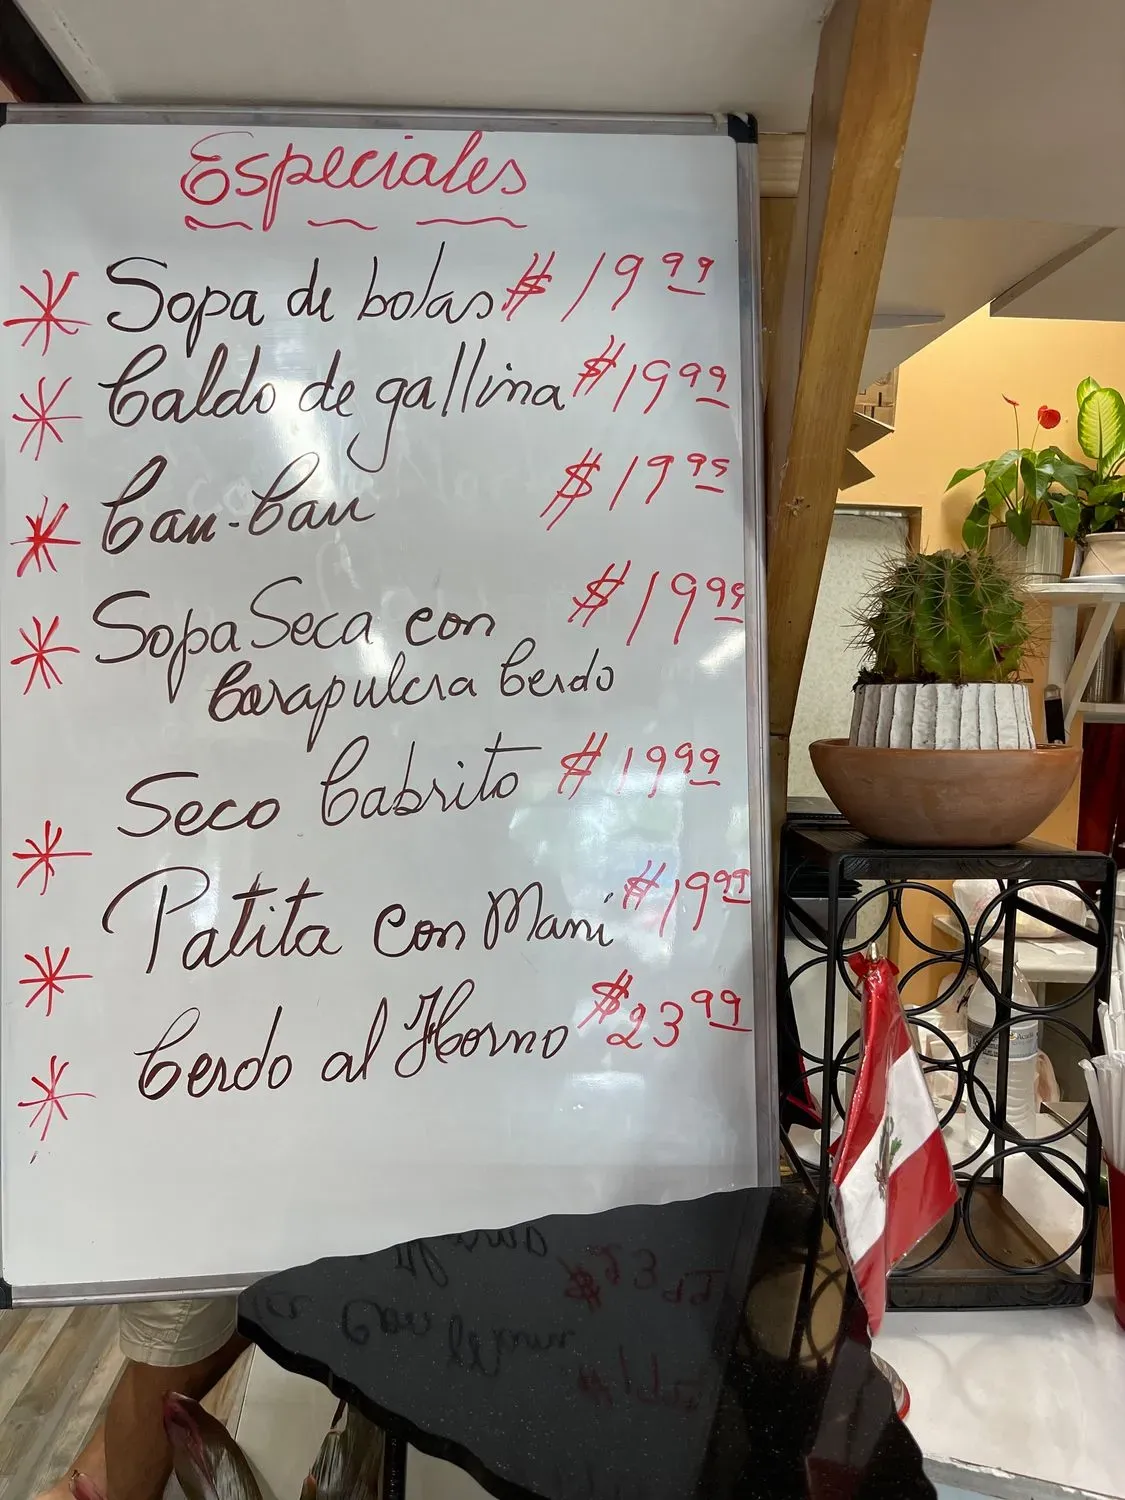 Especiales
* Sopa de bolas $ 19 99
* Caldo de gallina $ 19 99
* Cau-Cau $ 19 99
* Sopa Seca con $ 19 99
Carapulcra Cerdo
* Seco Cabrito $ 19 99
* Patita con Mani $ 19 99
* Cerdo al Horno $ 23 99